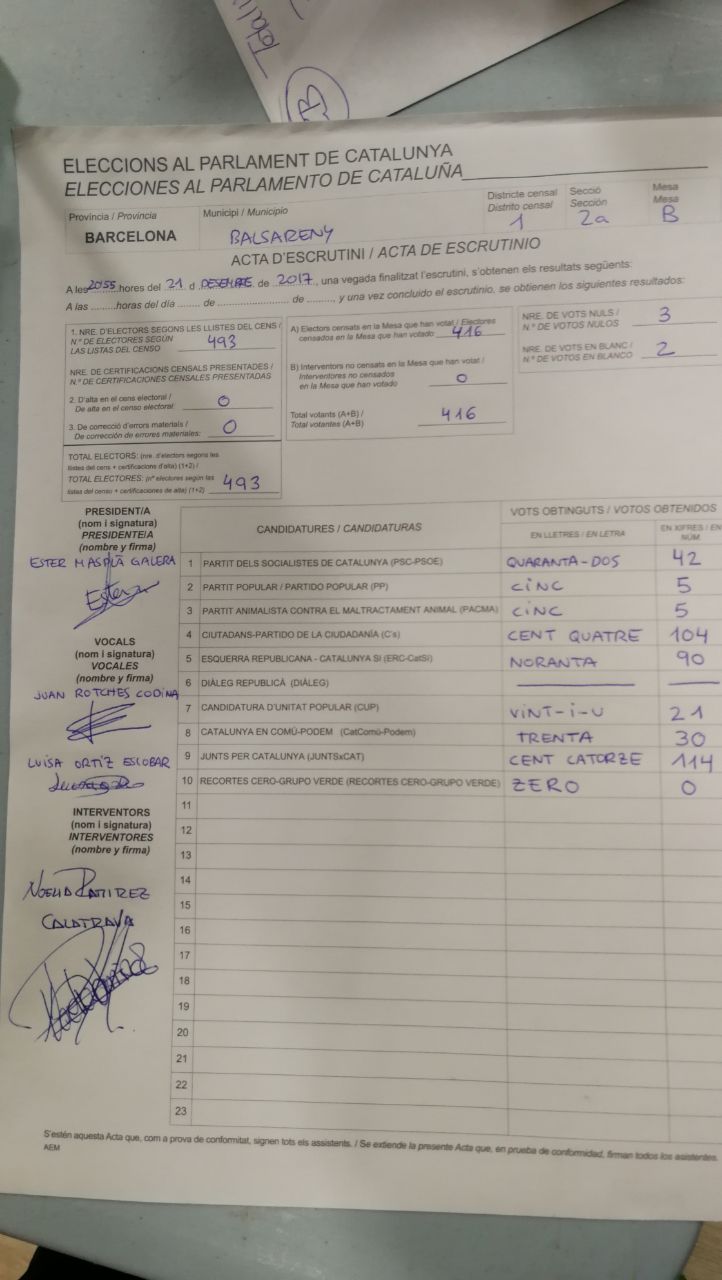 ELECCIONS AL PARLAMENT DE CATALUNYA
ELECCIONES AL PARLAMENTO DE CATALUÑA
Província / Provincia
BARCELONA
Municipi / Municipio
BALSARENY
Districte censal
Distrito censal
1
Secció
Sección
2a
Mesa
Mesa
B
ACTA D'ESCRUTINI / ACTA DE ESCRUTINIO
A les 2055 hores del 21 d DESEMBRE de 2017, una vegada finalitzat l'escrutini, s'obtenen els resultats següents:
A las ......... horas del día ........ de ........................ de ........., y una vez concluido el escrutinio, se obtienen los siguientes resultados:
1. NRE. D'ELECTORS SEGONS LES LLISTES DEL CENS /
N.º DE ELECTORES SEGÚN
LAS LISTAS DEL CENSO 493
NRE. DE CERTIFICACIONS CENSALS PRESENTADES /
N.º DE CERTIFICACIONES CENSALES PRESENTADAS
2. D'alta en el cens electoral /
De alta en el censo electoral: 0
3. De correcció d'errors materials /
De corrección de errores materiales: 0
TOTAL ELECTORS: (nre. d'electors segons les
llistes del cens + certificacions d'alta) (1+2) /
TOTAL ELECTORES: (nº electores según las
listas del censo + certificaciones de alta) (1+2) 493
A) Electors censats en la Mesa que han votat / Electores
censados en la Mesa que han votado 416
B) Interventors no censats en la Mesa que han votat /
Interventores no censados
en la Mesa que han votado 0
Total votants (A+B) /
Total votantes (A+B) 416
NRE. DE VOTS NULS /
N.º DE VOTOS NULOS 3
NRE. DE VOTS EN BLANC /
N.º DE VOTOS EN BLANCO 2
PRESIDENT/A
(nom i signatura)
PRESIDENTE/A
(nombre y firma)
ESTER MASPLÀ GALERA
Ester
VOCALS
(nom i signatura)
VOCALES
(nombre y firma)
JUAN ROTCHES CODINA
LUISA ORTIZ ESCOBAR
INTERVENTORS
(nom i signatura)
INTERVENTORES
(nombre y firma)
NOELIA RAMIREZ
CALATRAVA
CANDIDATURES / CANDIDATURAS
VOTS OBTINGUTS / VOTOS OBTENIDOS
EN LLETRES / EN LETRA
EN XIFRES / EN
NÚM
1 PARTIT DELS SOCIALISTES DE CATALUNYA (PSC-PSOE) QUARANTA-DOS 42
2 PARTIT POPULAR / PARTIDO POPULAR (PP) CINC 5
3 PARTIT ANIMALISTA CONTRA EL MALTRACTAMENT ANIMAL (PACMA) CINC 5
4 CIUTADANS-PARTIDO DE LA CIUDADANÍA (C's) CENT QUATRE 104
5 ESQUERRA REPUBLICANA - CATALUNYA SÍ (ERC-CatSí) NORANTA 90
6 DIÀLEG REPUBLICÀ (DIÀLEG)
7 CANDIDATURA D'UNITAT POPULAR (CUP) VINT-I-U 21
8 CATALUNYA EN COMÚ-PODEM (CatComú-Podem) TRENTA 30
9 JUNTS PER CATALUNYA (JUNTSxCAT) CENT CATORZE 114
10 RECORTES CERO-GRUPO VERDE (RECORTES CERO-GRUPO VERDE) ZERO 0
11
12
13
14
15
16
17
18
19
20
21
22
23
S'estén aquesta Acta que, com a prova de conformitat, signen tots els assistents. / Se extiende la presente Acta que, en prueba de conformidad, firman todos los asistentes.
AEM